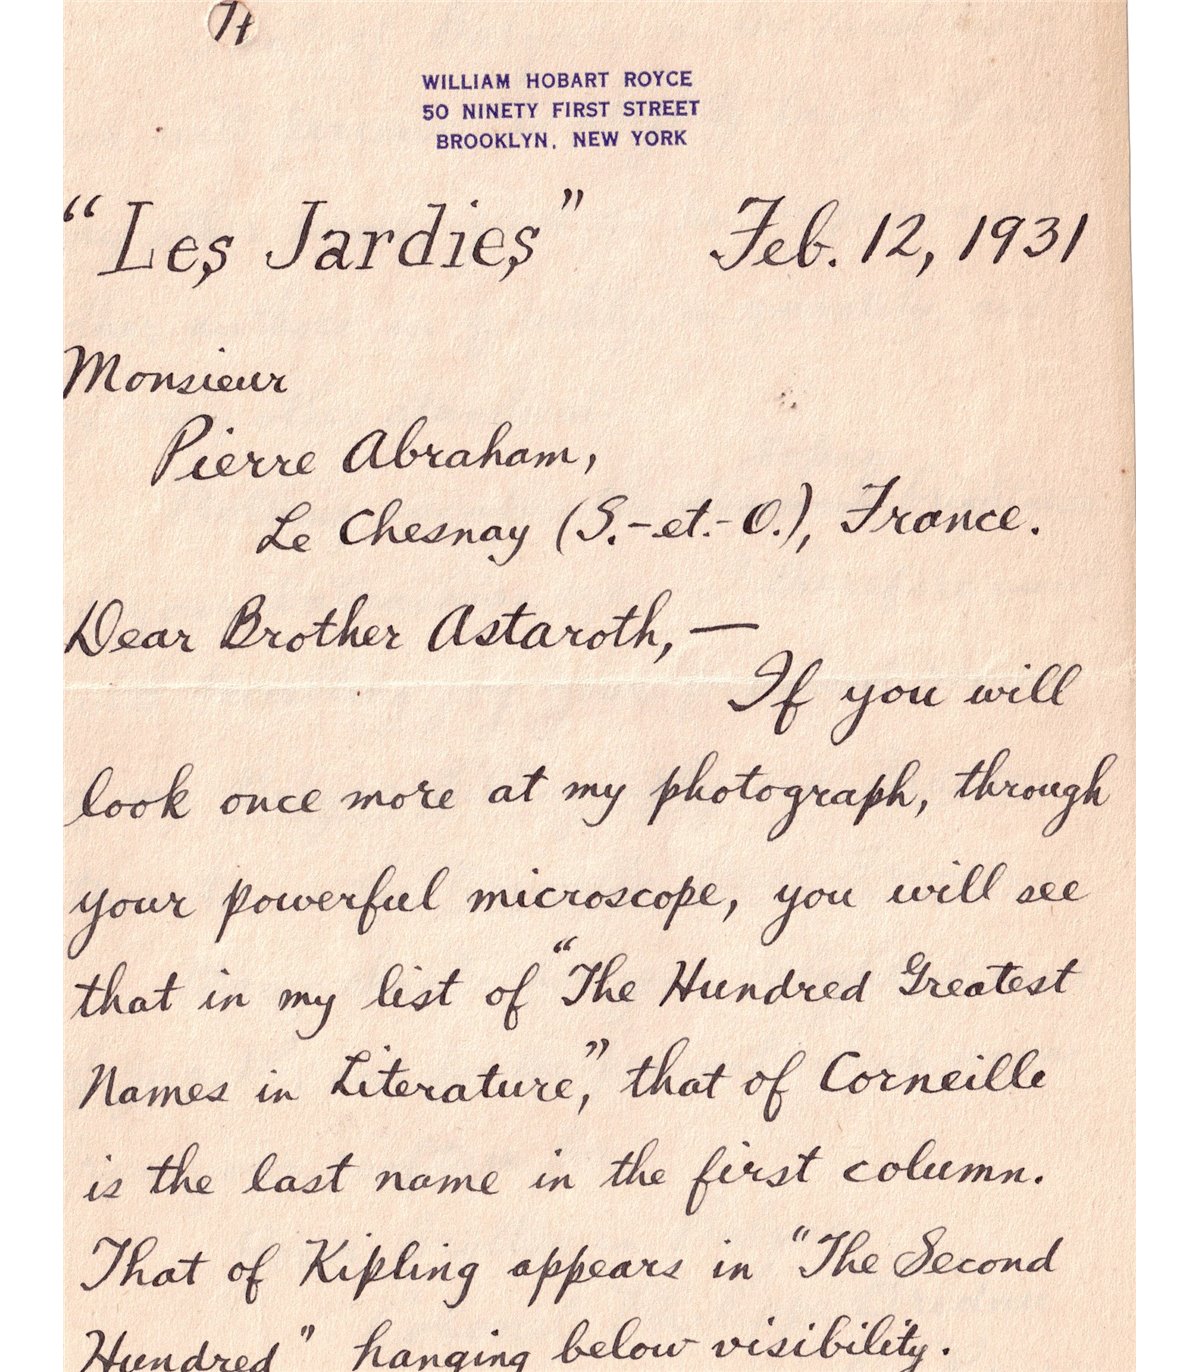 WILLIAM HOBART ROYCE
50 NINETY FIRST STREET
BROOKLYN, NEW YORK
"Les Jardies" Feb. 12, 1931
Monsieur
Pierre Abraham,
Le Chesnay (S.-et.-O.), France.
Dear Brother Astaroth,—
If you will
look once more at my photograph, through
your powerful microscope, you will see
that in my list of "The Hundred Greatest
Names in Literature," that of Corneille
is the last name in the first column.
That of Kipling appears in "The Second
Hundred" hanging below visibility.